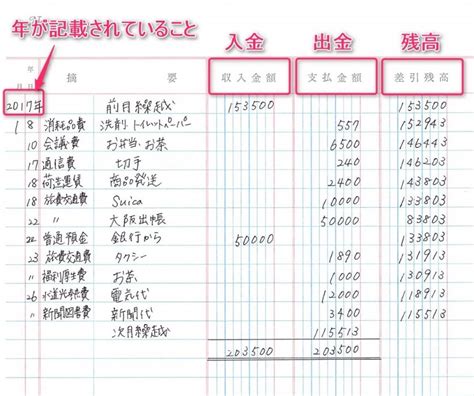 年が記載されていること 入金 出金 残高
年
月 日 摘 要 収入金額 支払金額 差引残高
2017年 前月繰越 153500 153500
1 8 消耗品費 洗剤・トイレットペーパー 557 152943
10 会議費 お弁当・お茶 6500 146443
17 通信費 切手 240 146203
18 荷造運賃 商品発送 2400 143803
18 旅費交通費 Suica 10000 133803
22 〃 大阪出張 50000 83803
22 普通預金 銀行から 50000 133803
23 旅費交通費 タクシー 1890 131913
〃 福利厚生費 お茶 1000 130913
26 水道光熱費 電気代 12000 118913
〃 新聞図書費 新聞代 3400 115513
次月繰越 115513
203500 203500